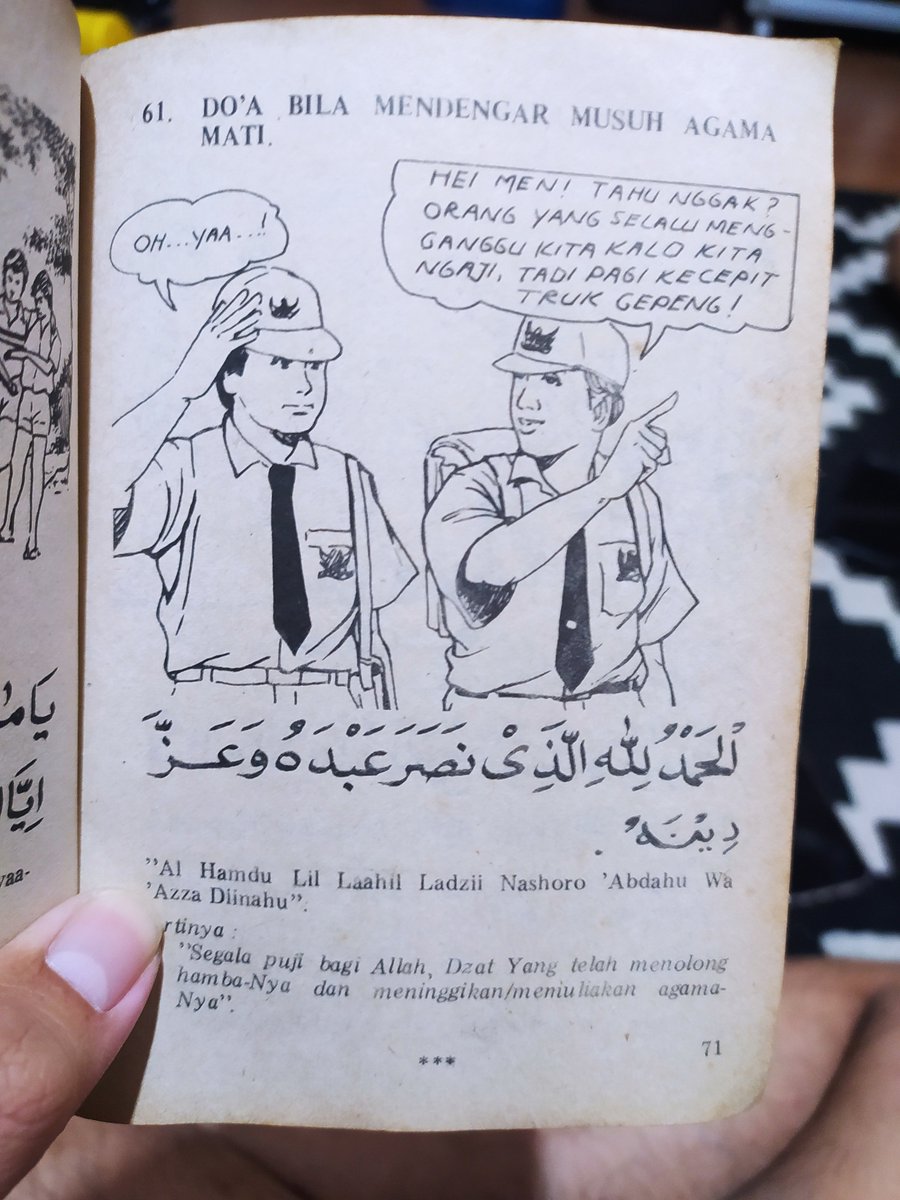 61. DO'A BILA MENDENGAR MUSUH AGAMA
MATI.
OH...YAA...!
HEI MEN! TAHU NGGAK?
ORANG YANG SELALU MENG-
GANGGU KITA KALO KITA
NGAJI, TADI PAGI KECEPIT
TRUK GEPENG!
اَلْحَمْدُ لِلّٰهِ الَّذِىْ نَصَرَ عَبْدَهُ وَعَزَّ
دِيْنَهُ .
"Al Hamdu Lil Laahil Ladzii Nashoro 'Abdahu Wa
'Azza Diinahu".
rtinya :
"Segala puji bagi Allah, Dzat Yang telah menolong
hamba-Nya dan meninggikan/memuliakan agama-
Nya".
***
71
yaa-